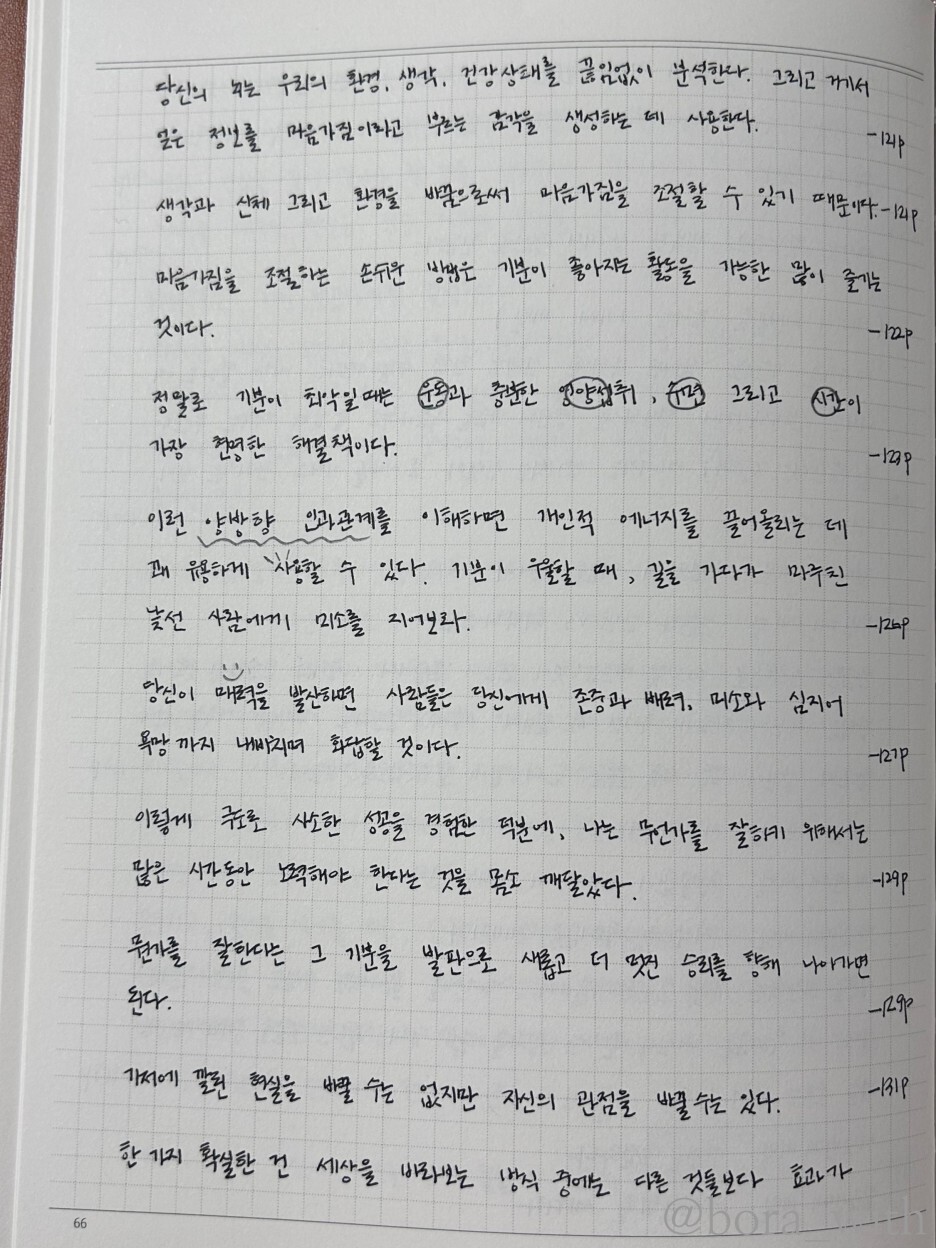 당신의 뇌는 우리의 환경, 생각, 건강상태를 끊임없이 분석한다. 그리고 거기서
얻은 정보를 마음가짐이라고 부르는 감각을 생성하는 데 사용한다. -121p
생각과 신체 그리고 환경을 바꿈으로써 마음가짐을 조절할 수 있기 때문이다. -121p
마음가짐을 조절하는 손쉬운 방법은 기분이 좋아지는 활동을 가능한 많이 즐기는
것이다. -122p
정말로 기분이 최악일 때는 운동과 충분한 영양섭취, 수면 그리고 시간이
가장 현명한 해결책이다. -123p
이런 양방향 인과관계를 이해하면 개인적 에너지를 끌어올리는 데
꽤 유용하게 사용할 수 있다. 기분이 우울할 때, 길을 가다가 마주친
낯선 사람에게 미소를 지어보라. -124p
당신이 매력을 발산하면 사람들은 당신에게 존중과 배려, 미소와 심지어
욕망까지 내비치며 화답할 것이다. -127p
이렇게 극도로 사소한 성공을 경험한 덕분에, 나는 무언가를 잘하기 위해서는
많은 시간동안 노력해야 한다는 것을 몸소 깨달았다. -129p
뭔가를 잘한다는 그 기분을 발판으로 새롭고 더 멋진 승리를 향해 나아가면
된다. -129p
기저에 깔린 현실을 바꿀 수는 없지만 자신의 관점을 바꿀 수는 있다. -131p
한 가지 확실한 건 세상을 바라보는 방식 중에는 다른 것들보다 효과가
66
@bora_with